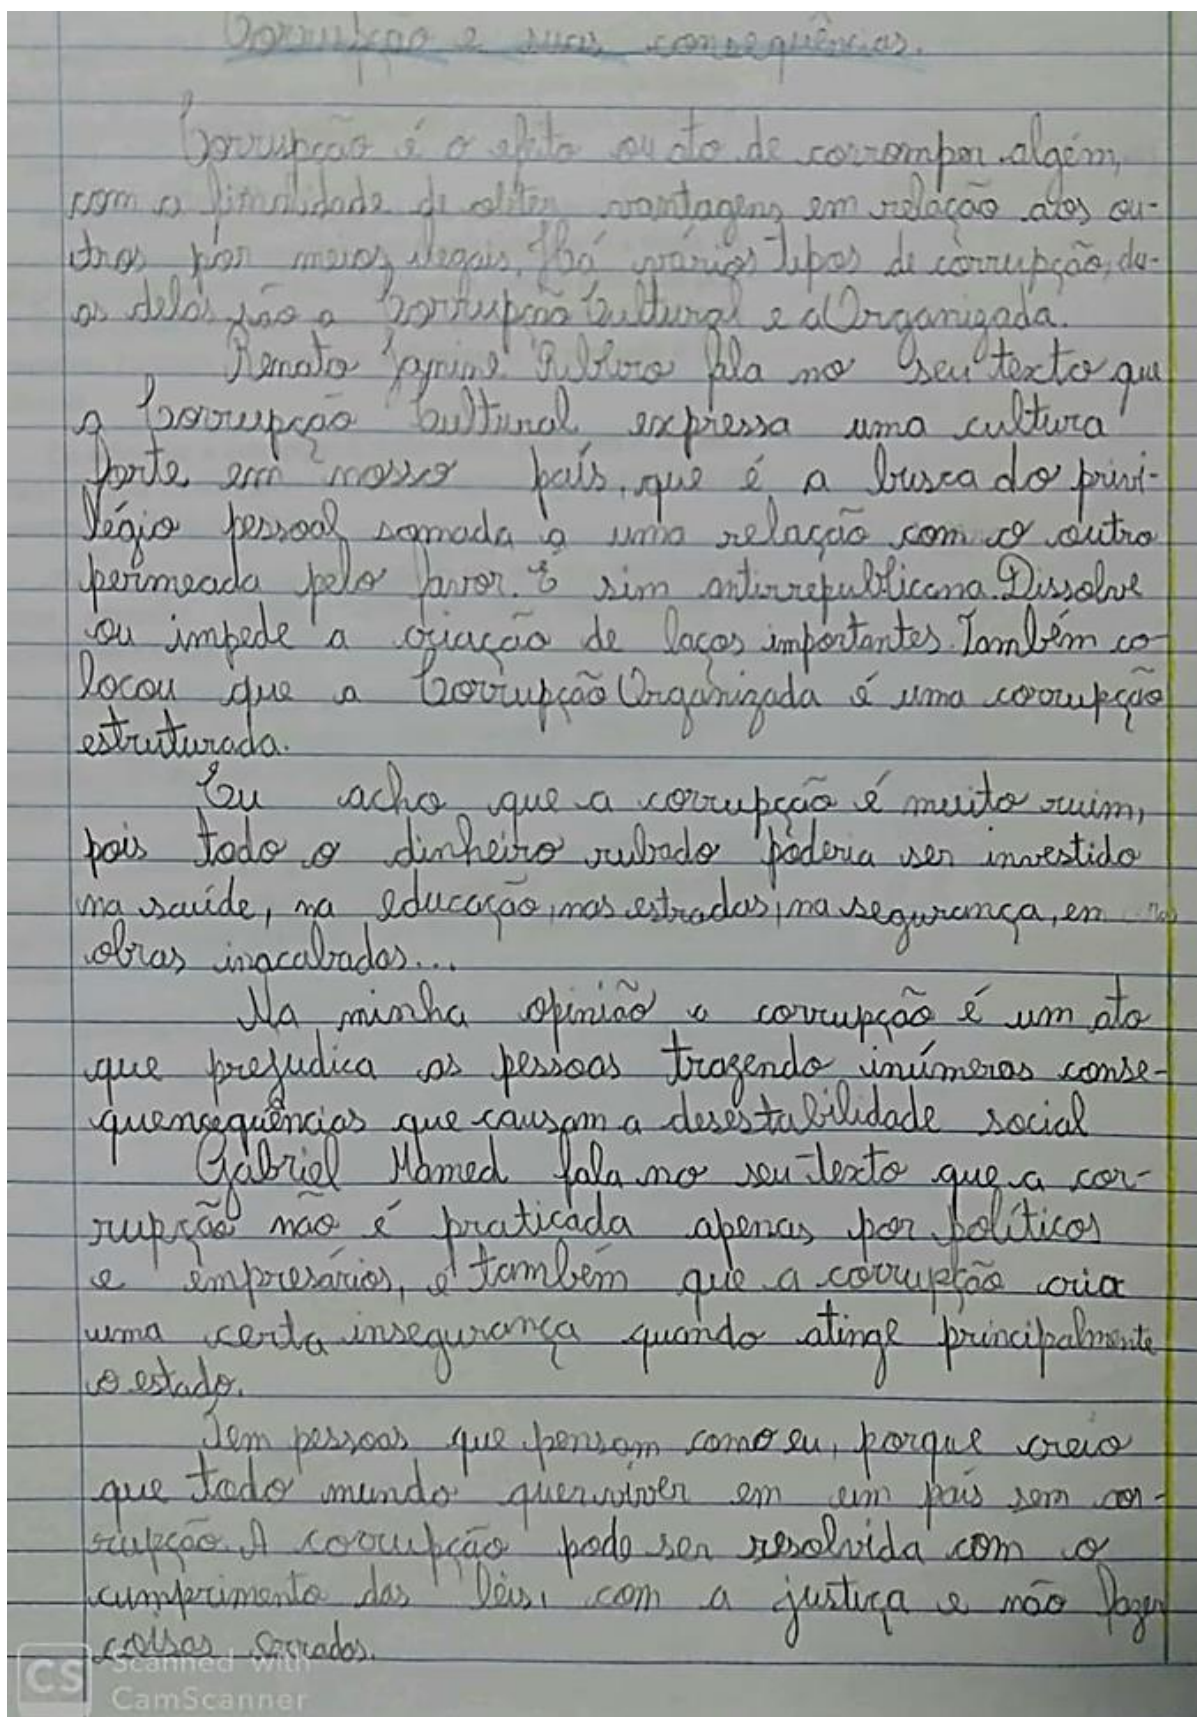 Corrupção e suas consequências.
Corrupção é o efeito ou ato de corromper algém,
com a finalidade de obter vantagens em relação aos ou-
tros por meios ilegais. Há vários tipos de corrupção, du-
as delas são a Corrupção Cultural e a Organizada.
Renato Janine Ribeiro fala no seu texto que
a Corrupção Cultural expressa uma cultura
forte em nosso país, que é a busca do privi-
légio pessoal somada a uma relação com o outro
permeada pelo favor. É sim antirrepublicana. Dissolve
ou impede a criação de laços importantes. Também co-
locou que a Corrupção Organizada é uma corrupção
estruturada.
Eu acho que a corrupção é muito ruim,
pois todo o dinheiro rubado poderia ser investido
na saúde, na educação, nas estradas, na segurança, em
obras inacabadas...
Na minha opinião a corrupção é um ato
que prejudica as pessoas trazendo inúmeras conse-
quencequências que causam a desestabilidade social
Gabriel Mamed fala no seu texto que a cor-
rupção não é praticada apenas por políticos
e empresários, e também que a corrupção cria
uma certa insegurança quando atinge principalmente
o estado.
Tem pessoas que pensam como eu, porque creio
que todo mundo quer viver em um país sem cor-
rupção. A corrupção pode ser resolvida com o
cumprimento das leis, com a justiça e não fazer
coisas erradas.
CS Scanned with
CamScanner